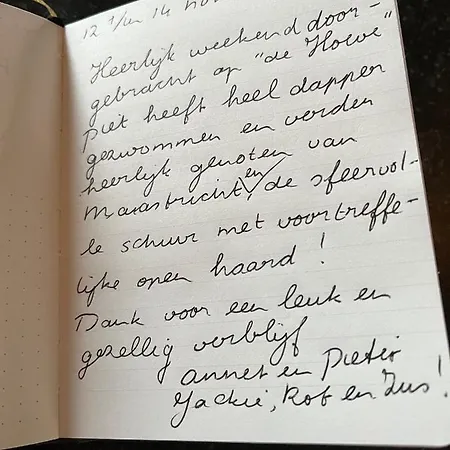 12 t/m 14 nov
Heerlijk weekend door-
gebracht op "de Hoeve"
Piet heeft heel dapper
gezwommen en verder
heerlijk genoten van
Maastricht, en de sfeervol-
le schuur met voortreffe-
lijke open haard!
Dank voor een leuk en
gezellig verblijf
Annet en Pieter
Jackie, Rob en Zus!